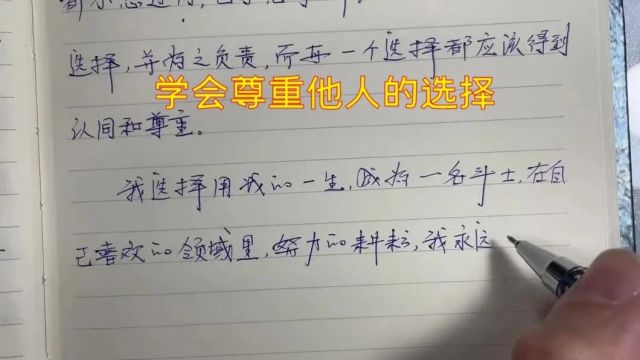 选择，并为之负责，而每一个选择都应该得到
学会尊重他人的选择
认同和尊重。
我选择用我的一生，成为一名斗士，在自
己喜欢的领域里，努力的耕耘，我永远